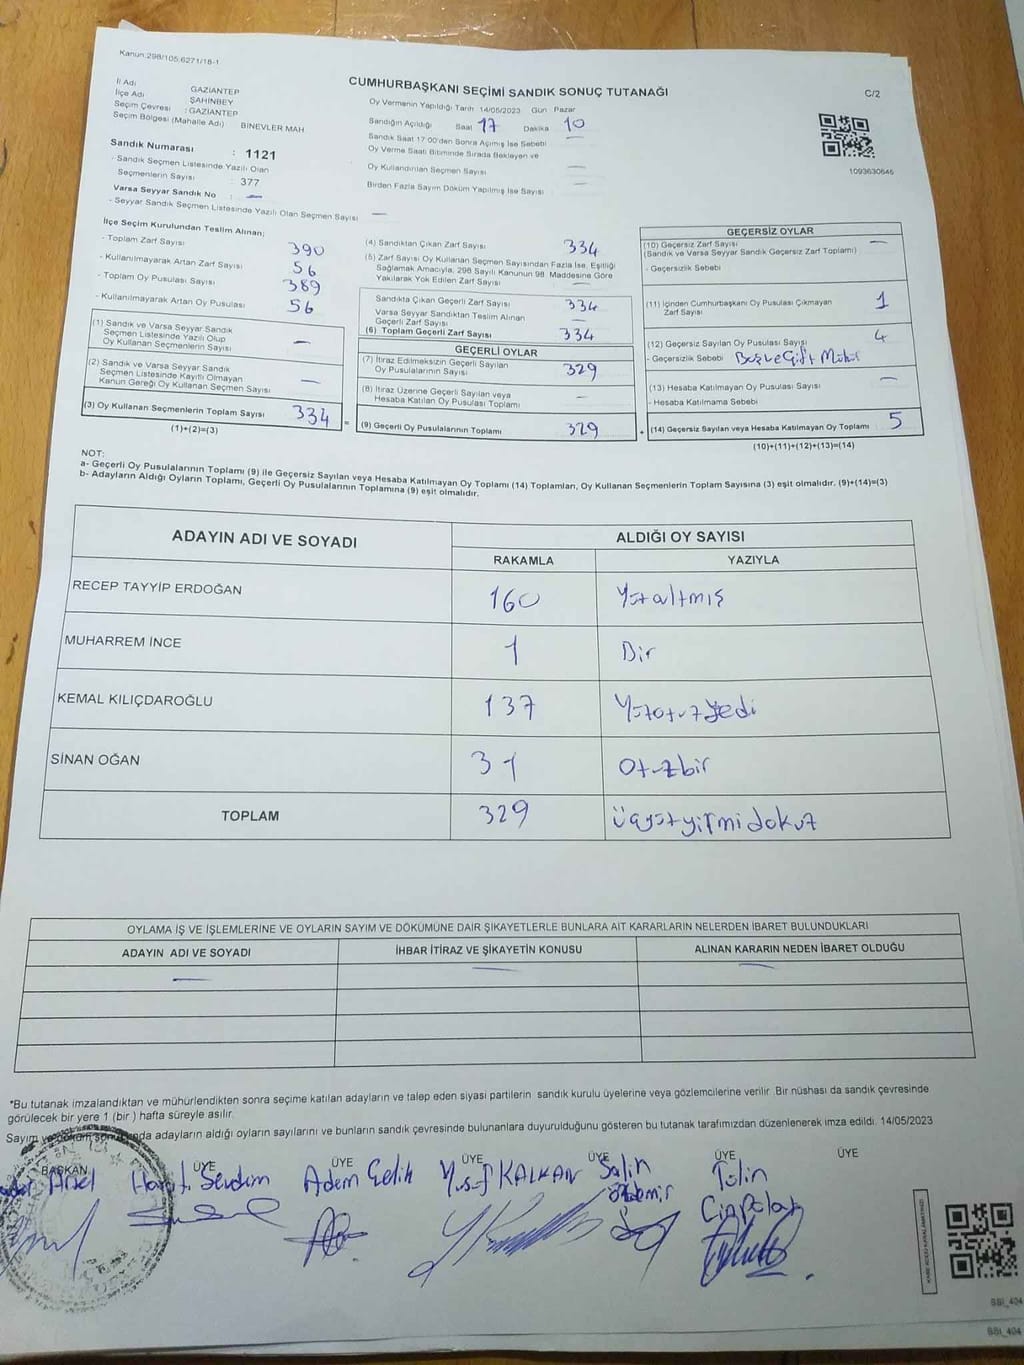 Kanun.298/105,6271/18-1
CUMHURBAŞKANI SEÇİMİ SANDIK SONUÇ TUTANAĞI
C/2
İl Adı GAZİANTEP
İlçe Adı ŞAHİNBEY
Seçim Çevresi : GAZİANTEP
Seçim Bölgesi (Mahalle Adı) BİNEVLER MAH
Oy Vermenin Yapıldığı Tarih 14/05/2023 Gün Pazar
Sandığın Açıldığı Saat 17 Dakika 10
Sandık Saat 17:00'den Sonra Açımış İse Sebebi
Oy Verme Saati Bitiminde Sırada Bekleyen ve
Oy Kullandırılan Seçmen Sayısı —
Birden Fazla Sayım Döküm Yapılmış İse Sayısı —
1093630646
Sandık Numarası : 1121
- Sandık Seçmen Listesinde Yazılı Olan
Seçmenlerin Sayısı : 377
Varsa Seyyar Sandık No : —
- Seyyar Sandık Seçmen Listesinde Yazılı Olan Seçmen Sayısı —
İlçe Seçim Kurulundan Teslim Alınan;
- Toplam Zarf Sayısı 390
- Kullanılmayarak Artan Zarf Sayısı 56
- Toplam Oy Pusulası Sayısı 389
- Kullanılmayarak Artan Oy Pusulası 56
(1) Sandık ve Varsa Seyyar Sandık
Seçmen Listesinde Yazılı Olup
Oy Kullanan Seçmenlerin Sayısı —
(2) Sandık ve Varsa Seyyar Sandık
Seçmen Listesinde Kayıtlı Olmayan
Kanun Gereği Oy Kullanan Seçmen Sayısı —
(3) Oy Kullanan Seçmenlerin Toplam Sayısı 334
(1)+(2)=(3)
(4) Sandıktan Çıkan Zarf Sayısı 334
(5) Zarf Sayısı Oy Kullanan Seçmen Sayısından Fazla İse, Eşitliği
Sağlamak Amacıyla, 298 Sayılı Kanunun 98. Maddesine Göre
Yakılarak Yok Edilen Zarf Sayısı —
Sandıkta Çıkan Geçerli Zarf Sayısı 334
Varsa Seyyar Sandıktan Teslim Alınan
Geçerli Zarf Sayısı —
(6) Toplam Geçerli Zarf Sayısı 334
GEÇERLİ OYLAR
(7) İtiraz Edilmeksizin Geçerli Sayılan
Oy Pusulalarının Sayısı 329
(8) İtiraz Üzerine Geçerli Sayılan veya
Hesaba Katılan Oy Pusulası Toplamı —
= (9) Geçerli Oy Pusulalarının Toplamı 329
GEÇERSİZ OYLAR
(10) Geçersiz Zarf Sayısı —
(Sandık ve Varsa Seyyar Sandık Geçersiz Zarf Toplamı)
- Geçersizlik Sebebi
(11) İçinden Cumhurbaşkanı Oy Pusulası Çıkmayan
Zarf Sayısı 1
(12) Geçersiz Sayılan Oy Pusulası Sayısı 4
- Geçersizlik Sebebi Boş ve Çift Mühür
(13) Hesaba Katılmayan Oy Pusulası Sayısı —
- Hesaba Katılmama Sebebi
+ (14) Geçersiz Sayılan veya Hesaba Katılmayan Oy Toplamı 5
(10)+(11)+(12)+(13)=(14)
NOT:
a- Geçerli Oy Pusulalarının Toplamı (9) ile Geçersiz Sayılan veya Hesaba Katılmayan Oy Toplamı (14) Toplamları, Oy Kullanan Seçmenlerin Toplam Sayısına (3) eşit olmalıdır. (9)+(14)=(3)
b- Adayların Aldığı Oyların Toplamı, Geçerli Oy Pusulalarının Toplamına (9) eşit olmalıdır.
ADAYIN ADI VE SOYADI ALDIĞI OY SAYISI
RAKAMLA YAZIYLA
RECEP TAYYİP ERDOĞAN 160 Yüzaltmış
MUHARREM İNCE 1 Bir
KEMAL KILIÇDAROĞLU 137 Yüzotuzyedi
SİNAN OĞAN 31 Otuzbir
TOPLAM 329 Üçyüzyirmidokuz
OYLAMA İŞ VE İŞLEMLERİNE VE OYLARIN SAYIM VE DÖKÜMÜNE DAİR ŞİKAYETLERLE BUNLARA AİT KARARLARIN NELERDEN İBARET BULUNDUKLARI
ADAYIN ADI VE SOYADI İHBAR İTİRAZ VE ŞİKAYETİN KONUSU ALINAN KARARIN NEDEN İBARET OLDUĞU
— — —
*Bu tutanak imzalandıktan ve mühürlendikten sonra seçime katılan adayların ve talep eden siyasi partilerin sandık kurulu üyelerine veya gözlemcilerine verilir. Bir nüshası da sandık çevresinde
görülecek bir yere 1 (bir) hafta süreyle asılır.
Sayım ve döküm sonucunda adayların aldığı oyların sayılarını ve bunların sandık çevresinde bulunanlara duyurulduğunu gösteren bu tutanak tarafımızdan düzenlenerek imza edildi. 14/05/2023
BAŞKAN ÜYE ÜYE ÜYE ÜYE ÜYE ÜYE
Arsel Sevdim Adem Çelik Yusuf KALKAN Salih Tülin
Özdemir Cinpolat
SBİ_404
SBİ_404